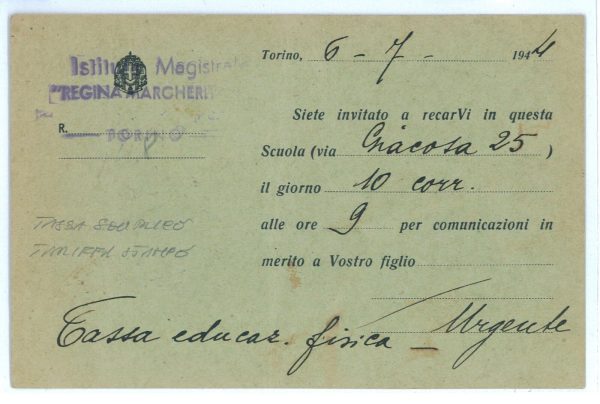 Istituto Magistrale
"REGINA MARGHERIT
R.
TORINO
Torino, 6 - 7 - 1944
Siete invitato a recarVi in questa
Scuola (via Giacosa 25 )
il giorno 10 corr.
alle ore 9 per comunicazioni in
merito a Vostro figlio
TASSA
TARIFFA STAMPE
Tassa educaz. fisica - Urgente